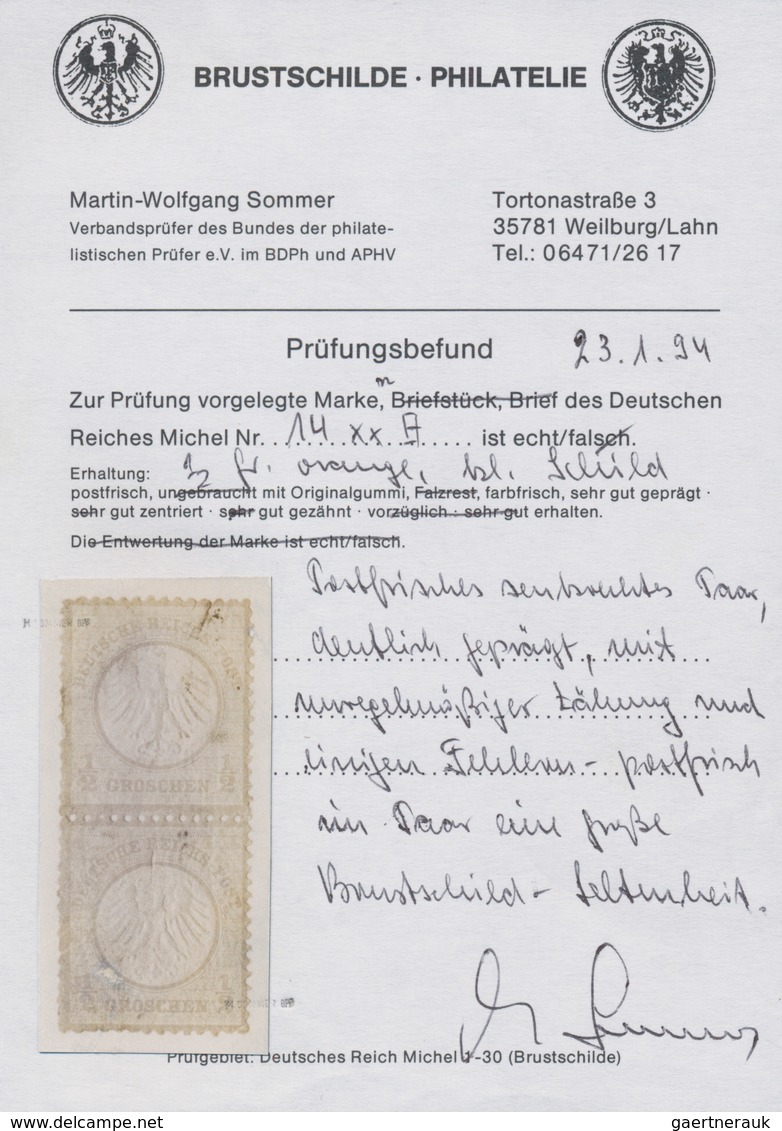 BRUSTSCHILDE · PHILATELIE
Martin-Wolfgang Sommer
Verbandsprüfer des Bundes der philate-
listischen Prüfer e.V. im BDPh und APHV
Tortonastraße 3
35781 Weilburg/Lahn
Tel.: 06471/26 17
Prüfungsbefund 23.1.94
Zur Prüfung vorgelegte Marke,n Briefstück, Brief des Deutschen
Reiches Michel Nr. 14 xx ist echt/falsch.
Erhaltung: ½ Gr. orange, Schild
postfrisch, ungebraucht mit Originalgummi, Falzrest, farbfrisch, sehr gut geprägt ·
sehr gut zentriert · sehr gut gezähnt · vorzüglich · sehr gut erhalten.
Die Entwertung der Marke ist echt/falsch.
Postfrisches senkrechtes Paar,
deutlich geprägt, mit
unregelmäßiger Zähnung und
einigen Fehlern - postfrisch
im Paar eine große
Brustschild - Seltenheit.
DEUTSCHE REICHS-POST
½ GROSCHEN ½
DEUTSCHE REICHS-POST
½ GROSCHEN ½
Prüfgebiet: Deutsches Reich Michel 1-30 (Brustschilde)
www.delcampe.net
gaertnerauk